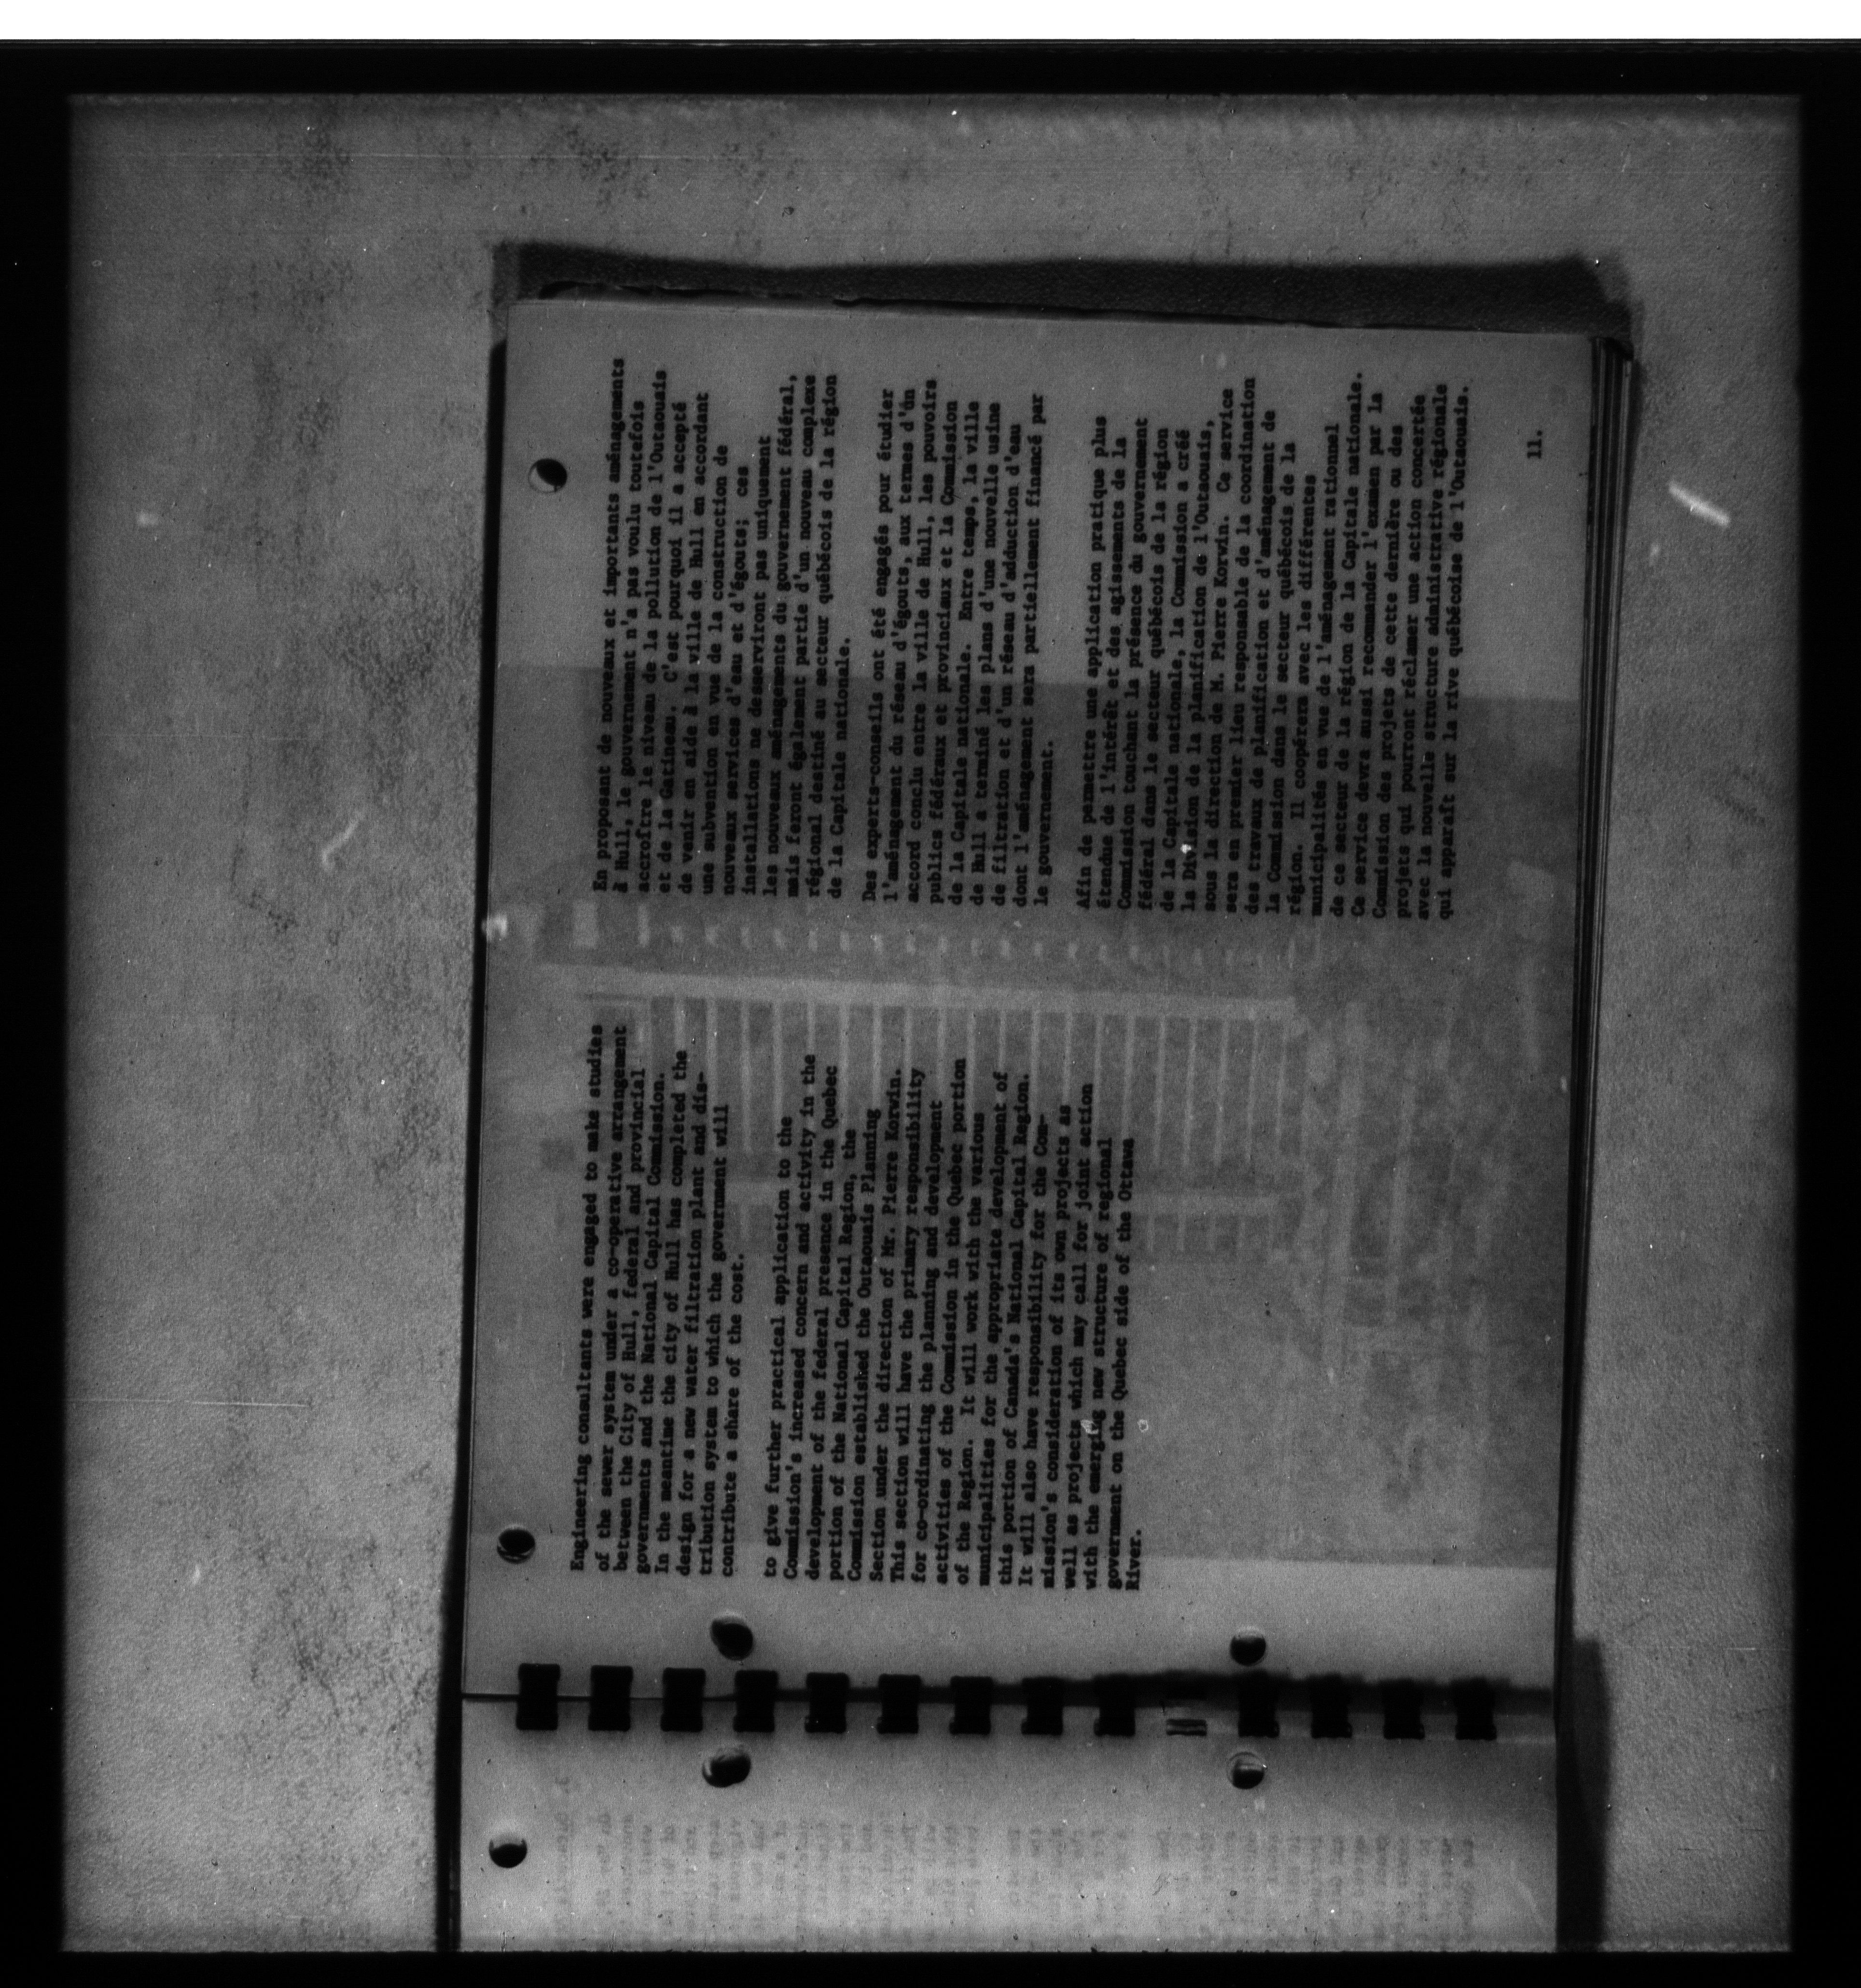 Engineering consultants were engaged to make studies
of the sewer system under a co-operative arrangement
between the City of Hull, federal and provincial
governments and the National Capital Commission.
In the meantime the city of Hull has completed the
design for a new water filtration plant and dis-
tribution system to which the government will
contribute a share of the cost.
to give further practical application to the
Commission's increased concern and activity in the
development of the federal presence in the Quebec
portion of the National Capital Region, the
Commission established the Outaouais Planning
Section under the direction of Mr. Pierre Korwin.
This section will have the primary responsibility
for co-ordinating the planning and development
activities of the Commission in the Quebec portion
of the Region.  It will work with the various
municipalities for the appropriate development of
this portion of Canada's National Capital Region.
It will also have responsibility for the Com-
mission's consideration of its own projects as
well as projects which may call for joint action
with the emerging new structure of regional
government on the Quebec side of the Ottawa
River.
En proposant de nouveaux et importants aménagements
à Hull, le gouvernement n'a pas voulu toutefois
accroître le niveau de la pollution de l'Outaouais
et de la Gatineau.  C'est pourquoi il a accepté
de venir en aide à la ville de Hull en accordant
une subvention en vue de la construction de
nouveaux services d'eau et d'égouts; ces
installations ne desserviront pas uniquement
les nouveaux aménagements du gouvernement fédéral,
mais feront également partie d'un nouveau complexe
régional destiné au secteur québécois de la région
de la Capitale nationale.
Des experts-conseils ont été engagés pour étudier
l'aménagement du réseau d'égouts, aux termes d'un
accord conclu entre la ville de Hull, les pouvoirs
publics fédéraux et provinciaux et la Commission
de la Capitale nationale.  Entre temps, la ville
de Hull a terminé les plans d'une nouvelle usine
de filtration et d'un réseau d'adduction d'eau
dont l'aménagement sera partiellement financé par
le gouvernement.
Afin de permettre une application pratique plus
étendue de l'intérêt et des agissements de la
Commission touchant la présence du gouvernement
fédéral dans le secteur québécois de la région
de la Capitale nationale, la Commission a créé
la Division de la planification de l'Outaouais,
sous la direction de M. Pierre Korwin.  Ce service
sera en premier lieu responsable de la coordination
des travaux de planification et d'aménagement de
la Commission dans le secteur québécois de la
région.  Il coopérera avec les différentes
municipalités en vue de l'aménagement rationnel
de ce secteur de la région de la Capitale nationale.
Ce service devra aussi recommander l'examen par la
Commission des projets de cette dernière ou des
projets qui pourront réclamer une action concertée
avec la nouvelle structure administrative régionale
qui apparaît sur la rive québécoise de l'Outaouais.
11.